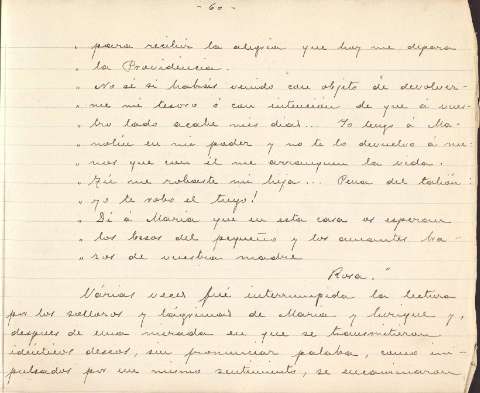 - 60 -
" para recibir la alegria que hoy me depara
" la Providencia.
" No sé si habéis venido con objeto de devolver-
" me mi tesoro ó con intención de que á vues-
" tro lado acabe mis dias... Yo tengo á Ma-
" nolin en mi poder y no te lo devuelvo á me-
" nos que con él me arranquen la vida.
" Tú me robaste mi hija... Pena del talión:
" yo te robo el tuyo!
" Di á Maria que en esta casa os esperan
" los besos del pequeño y los amantes bra-
" zos de vuestra madre
Rosa."
Várias veces fué interrumpida la lectura
por los sollozos y lágrimas de Maria y Enrique y,
despues de una mirada en que se transmitieron
identicos deseos, sin pronunciar palabra, como im-
pulsados por un mismo sentimiento, se encaminaron